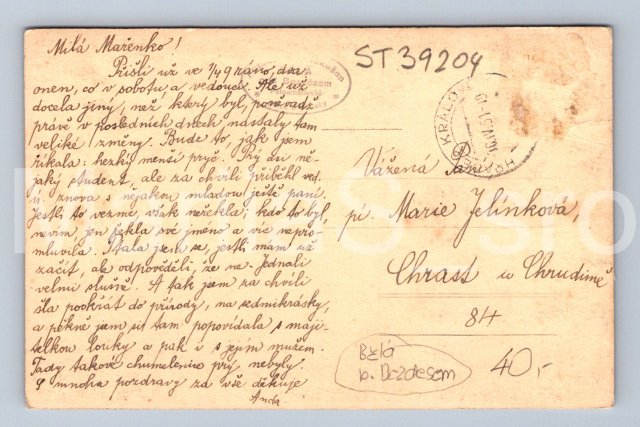 Milá Mařenko!
Přišli už ve 1/4 9 ráno, dva
onen, co v sobotu, a vedoucí. Ale už
docela jiný, než který byl, poněvadž
právě v posledních dnech nastaly tam
veliké změny. Bude to, jak jsem
říkala: hezký menší pryč. Prý asi ně-
jaký student, ale za chvíli přiběhl ved.
znova s nějakou mladou ještě paní.
Jestli to vezme, však neřekla; kdo to byl,
nevím, jen řekla své jméno a víc nepro-
mluvila. Ptala jsem se, jestli mám už
začít, ale odpověděli, že ne. Jednali
velmi slušně. A tak jsem za chvíli
šla pookřát do přírody, na sedmikrásky,
a pěkně jsem si tam popovídala s maji-
telkou louky a pak i s jejím mužem.
Tady takové chumelenice prý nebyly.
S mnoha pozdravy za vše děkuje
Anda
ST 39204
HRADEC KRÁLOVÉ
Vážená paní
pí. Marie Jelínková,
Chrast u Chrudimě
84
Bělá
p. Bezdězem
40,-